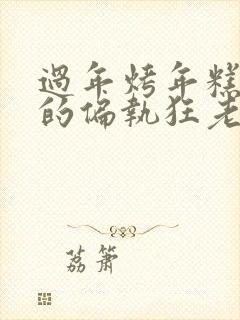 過年烤年糕
的偏執狂老
荔簫